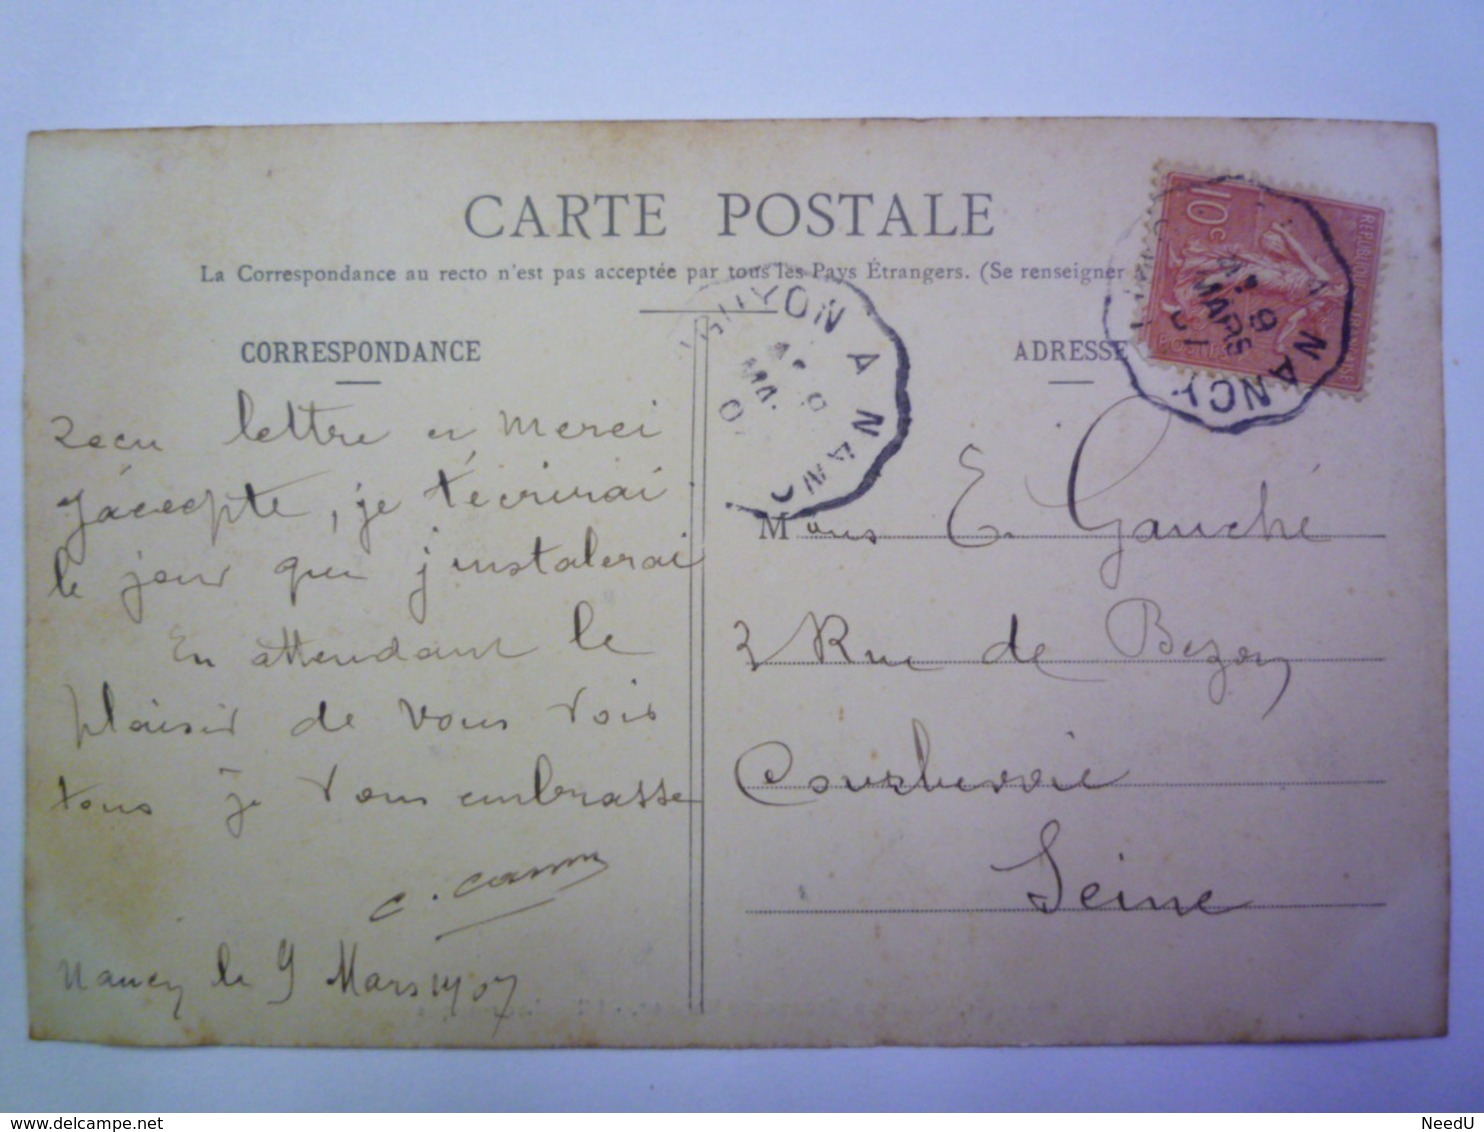 CARTE POSTALE
La Correspondance au recto n'est pas acceptée par tous les Pays Étrangers. (Se renseigner
CORRESPONDANCE
ADRESSE
10c
GUYON A NANC
A NANCY
9
MARS
Recu lettre et merci
J'accepte, je t'écrirai
le jour que j'instalerai
En attendant le
plaisir de vous vois
tous je vous embrasse
C.
Nancy le 9 Mars 1907
Mons E. Gauché
3 Rue de Bezon
Courbevoie
Seine
NeedU
www.delcampe.net